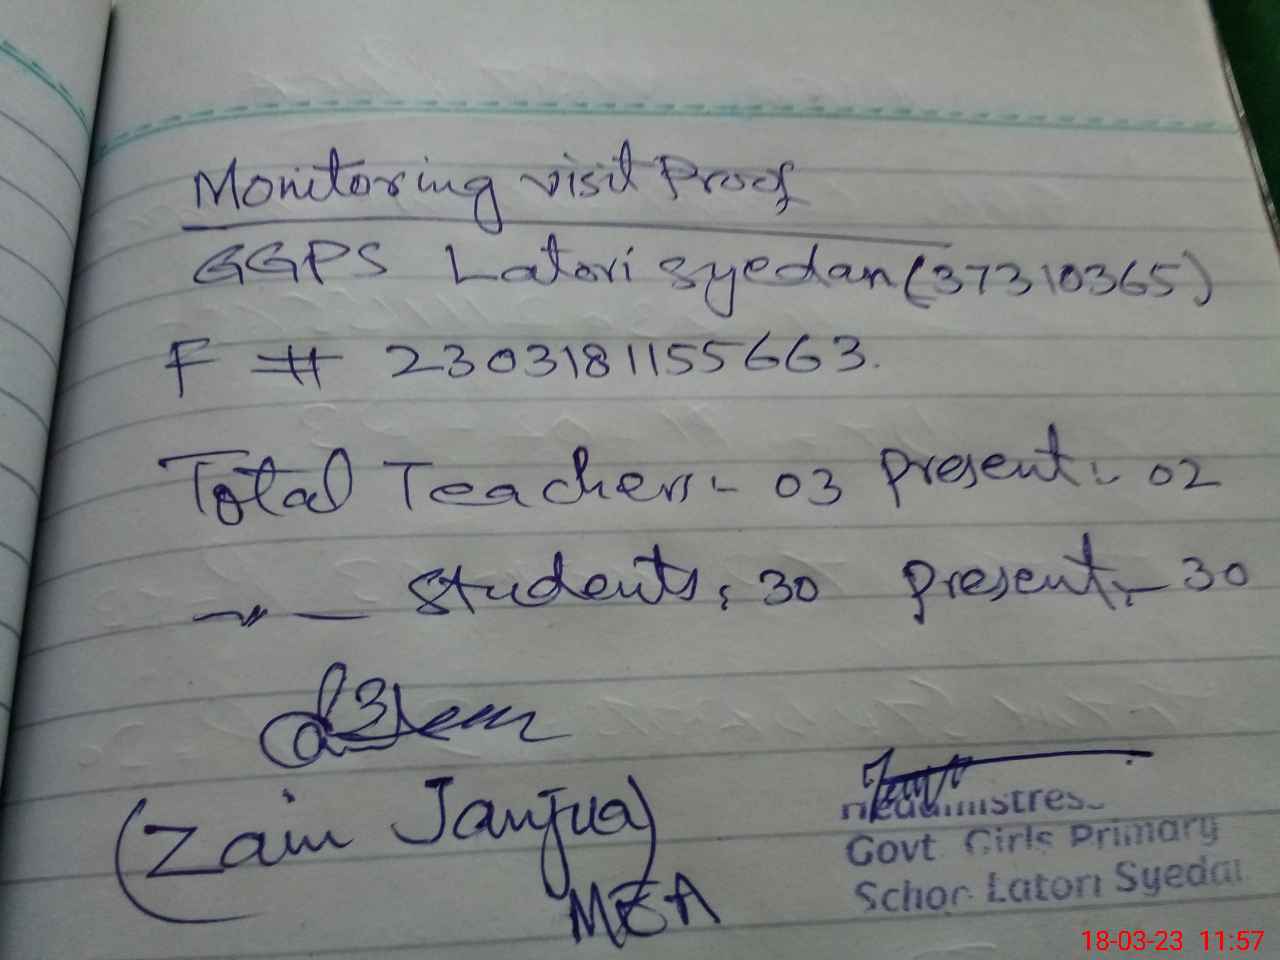 Monitoring visit Proof
GGPS Latori Syedan (37310365)
F # 2303181155663.
Total Teachers:- 03 Present:- 02
—〃— Students: 30 Present:- 30
(Zain Janjua)
MEA
Headmistress
Govt Girls Primary
School Latori Syedan
18-03-23 11:57